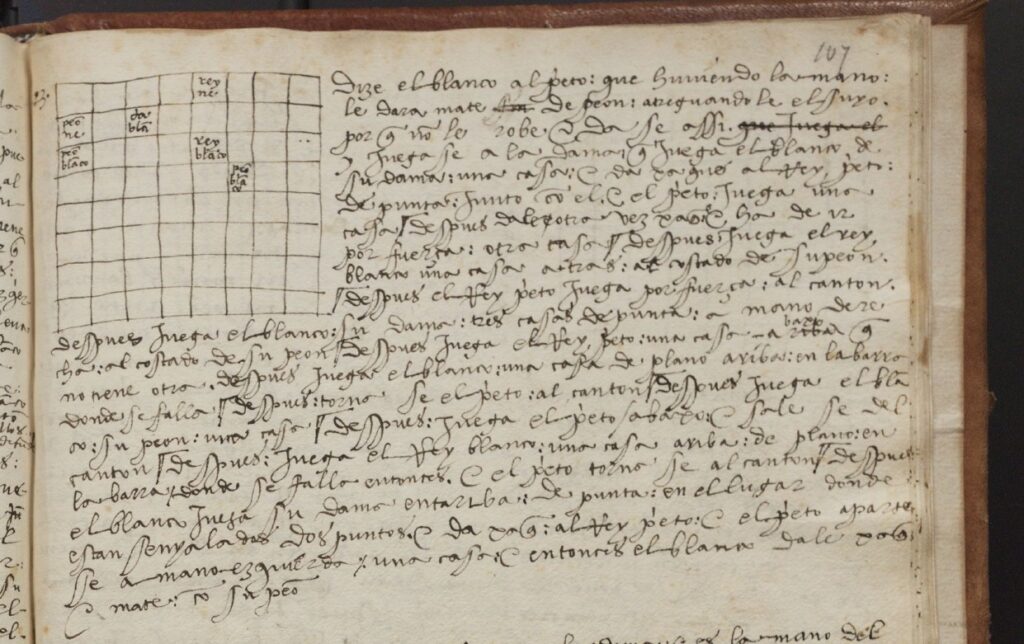 107
rey
ne
peo
ne
da
bla
peo
blaco
rey
blaco
Dize el blanco al peto: que huviendo la mano:
le dara mate de peon: atreguando le el suyo.
por q̃ no le robe & da se assi. que Juega el
y Juega se a la dama q̃ Juega el blanco de
su dama: una casa: & da xaque al Rey peto:
de punta: Junto cō el. & el peto: Juega una
casa / despues dale otra vez xaq̃. & ha de ir
por fuerça: otra casa / despues: Juega el rey
blanco una casa atras: al costado de su peon.
/ despues el Rey peto Juega por fuerça: al canton.
despues Juega el blanco: su dama: tres casas de punta: a mano dere
cha: al costado de su peon / despues Juega el Rey, peto: una casa a baxo q̃
no tiene otra. despues Juega el blanco: una casa de plano ariba: en la barra
donde se falla / despues: torna se el peto: al canton / despues Juega el blā
co: su peon: una casa / despues: Juega el peto / abaxo: & sale se del
canton / despues: Juega el Rey blanco: una casa ariba: de plano: en
la barra donde se falla entonces. & el peto torna se al canton / despues
el blanco Juega su dama entariba: de punta: en el lugar donde
estan senyalados dos puntos. & da xaq̃: al Rey peto: & el peto aparte
se a mano ezquierda / una casa: & entonces el blanco dale xaq̃
& mate: cō su peō
es la mano del